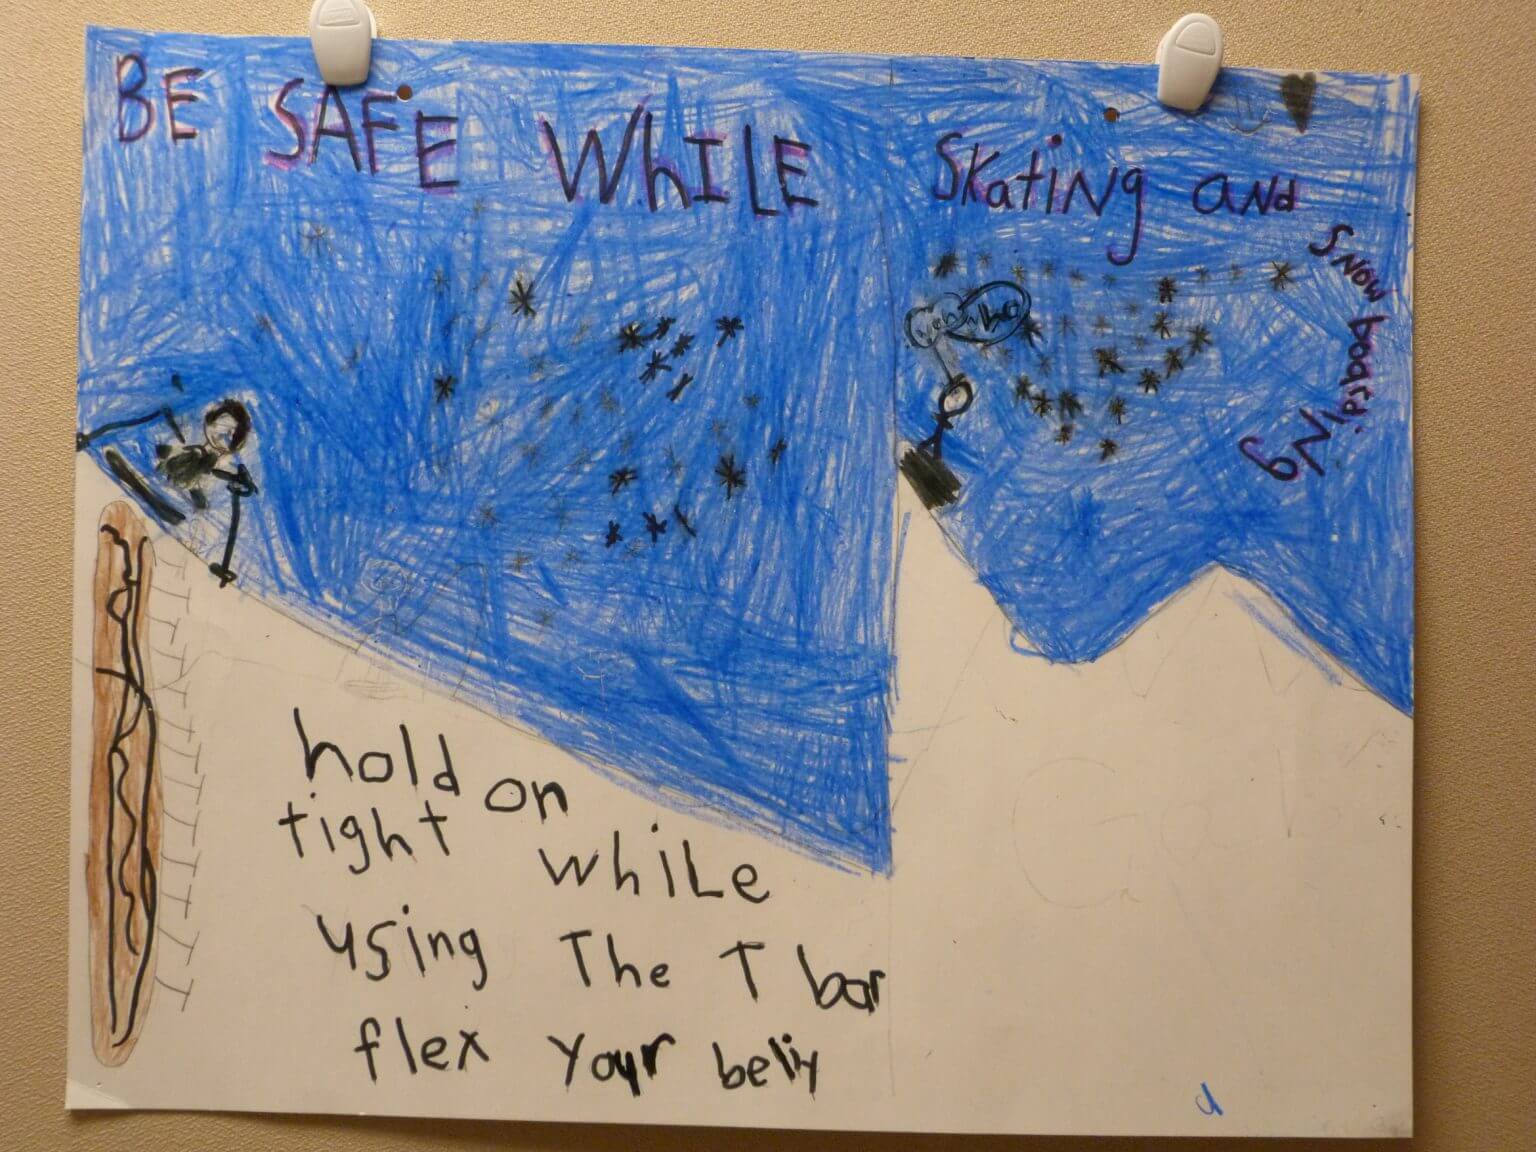 BE SAFE WhILE Skating and
Snow boarding
hold on
tight while
using The T bar
flex your belly